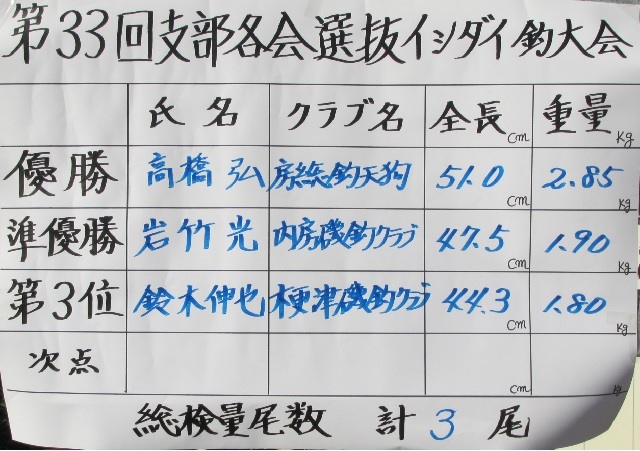 第33回支部各会選抜イシダイ釣大会
氏名 クラブ名 全長cm 重量Kg
優勝 高橋弘 房総釣天狗 51.0cm 2.85Kg
準優勝 岩竹光 内房磯釣クラブ 47.5cm 1.90Kg
第3位 鈴木伸也 木更津磯釣クラブ 44.3cm 1.80Kg
次点 cm Kg
総検量尾数 計3尾